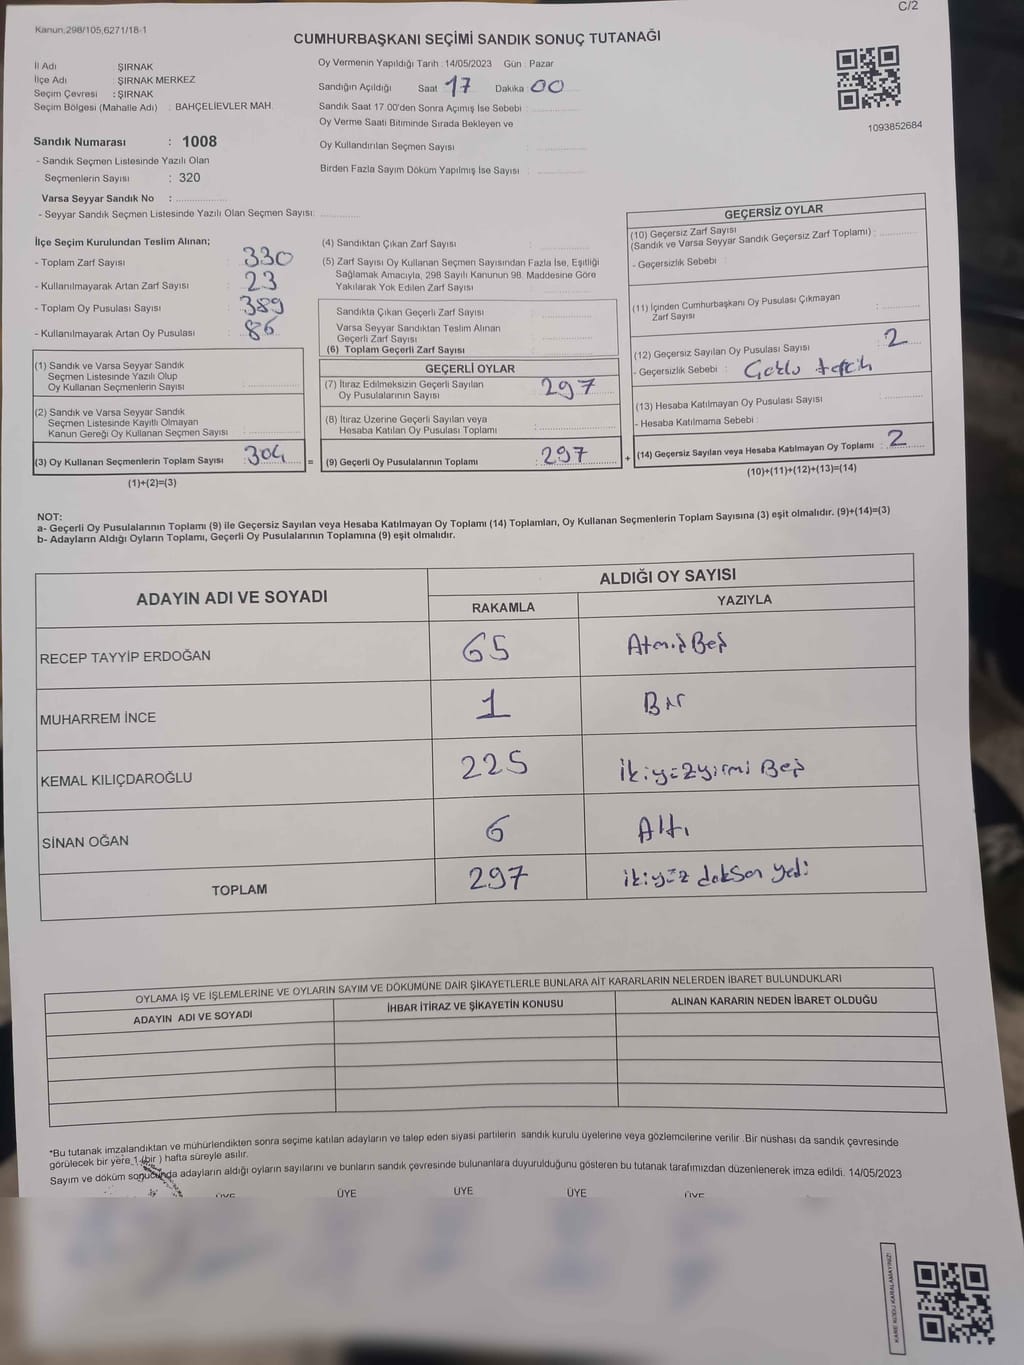 C/2
Kanun,298/105,6271/18-1
CUMHURBAŞKANI SEÇİMİ SANDIK SONUÇ TUTANAĞI
İl Adı ŞIRNAK
İlçe Adı ŞIRNAK MERKEZ
Seçim Çevresi : ŞIRNAK
Seçim Bölgesi (Mahalle Adı) : BAHÇELİEVLER MAH.
Sandık Numarası : 1008
- Sandık Seçmen Listesinde Yazılı Olan
Seçmenlerin Sayısı : 320
Varsa Seyyar Sandık No :
- Seyyar Sandık Seçmen Listesinde Yazılı Olan Seçmen Sayısı:
Oy Vermenin Yapıldığı Tarih : 14/05/2023 Gün : Pazar
Sandığın Açıldığı Saat 17 Dakika 00
Sandık Saat 17.00'den Sonra Açımış İse Sebebi :
Oy Verme Saati Bitiminde Sırada Bekleyen ve
Oy Kullandırılan Seçmen Sayısı :
Birden Fazla Sayım Döküm Yapılmış İse Sayısı :
1093852684
İlçe Seçim Kurulundan Teslim Alınan;
- Toplam Zarf Sayısı : 330
- Kullanılmayarak Artan Zarf Sayısı : 23
- Toplam Oy Pusulası Sayısı : 389
- Kullanılmayarak Artan Oy Pusulası : 86
(1) Sandık ve Varsa Seyyar Sandık
Seçmen Listesinde Yazılı Olup
Oy Kullanan Seçmenlerin Sayısı :
(2) Sandık ve Varsa Seyyar Sandık
Seçmen Listesinde Kayıtlı Olmayan
Kanun Gereği Oy Kullanan Seçmen Sayısı :
(3) Oy Kullanan Seçmenlerin Toplam Sayısı : 304 =
(1)+(2)=(3)
(4) Sandıktan Çıkan Zarf Sayısı :
(5) Zarf Sayısı Oy Kullanan Seçmen Sayısından Fazla İse, Eşitliği
Sağlamak Amacıyla, 298 Sayılı Kanunun 98. Maddesine Göre
Yakılarak Yok Edilen Zarf Sayısı :
Sandıkta Çıkan Geçerli Zarf Sayısı :
Varsa Seyyar Sandıktan Teslim Alınan
Geçerli Zarf Sayısı :
(6) Toplam Geçerli Zarf Sayısı :
GEÇERLİ OYLAR
(7) İtiraz Edilmeksizin Geçerli Sayılan
Oy Pusulalarının Sayısı : 297
(8) İtiraz Üzerine Geçerli Sayılan veya
Hesaba Katılan Oy Pusulası Toplamı :
(9) Geçerli Oy Pusulalarının Toplamı : 297 +
GEÇERSİZ OYLAR
(10) Geçersiz Zarf Sayısı
(Sandık ve Varsa Seyyar Sandık Geçersiz Zarf Toplamı) :
- Geçersizlik Sebebi :
(11) İçinden Cumhurbaşkanı Oy Pusulası Çıkmayan
Zarf Sayısı :
(12) Geçersiz Sayılan Oy Pusulası Sayısı : 2
- Geçersizlik Sebebi : tercih
(13) Hesaba Katılmayan Oy Pusulası Sayısı :
- Hesaba Katılmama Sebebi :
(14) Geçersiz Sayılan veya Hesaba Katılmayan Oy Toplamı : 2
(10)+(11)+(12)+(13)=(14)
NOT:
a- Geçerli Oy Pusulalarının Toplamı (9) ile Geçersiz Sayılan veya Hesaba Katılmayan Oy Toplamı (14) Toplamları, Oy Kullanan Seçmenlerin Toplam Sayısına (3) eşit olmalıdır. (9)+(14)=(3)
b- Adayların Aldığı Oyların Toplamı, Geçerli Oy Pusulalarının Toplamına (9) eşit olmalıdır.
ADAYIN ADI VE SOYADI ALDIĞI OY SAYISI
RAKAMLA YAZIYLA
RECEP TAYYİP ERDOĞAN 65 Atmış Beş
MUHARREM İNCE 1 Bir
KEMAL KILIÇDAROĞLU 225 İkiyüzyirmi Beş
SİNAN OĞAN 6 Altı
TOPLAM 297 ikiyüz doksan yedi
OYLAMA İŞ VE İŞLEMLERİNE VE OYLARIN SAYIM VE DÖKÜMÜNE DAİR ŞİKAYETLERLE BUNLARA AİT KARARLARIN NELERDEN İBARET BULUNDUKLARI
ADAYIN ADI VE SOYADI İHBAR İTİRAZ VE ŞİKAYETİN KONUSU ALINAN KARARIN NEDEN İBARET OLDUĞU
*Bu tutanak imzalandıktan ve mühürlendikten sonra seçime katılan adayların ve talep eden siyasi partilerin sandık kurulu üyelerine veya gözlemcilerine verilir .Bir nüshası da sandık çevresinde
görülecek bir yere 1 (bir ) hafta süreyle asılır.
Sayım ve döküm sonucunda adayların aldığı oyların sayılarını ve bunların sandık çevresinde bulunanlara duyurulduğunu gösteren bu tutanak tarafımızdan düzenlenerek imza edildi. 14/05/2023
ÜYE ÜYE ÜYE ÜYE ÜYE
KARE KODU KARALAMAYINIZ!